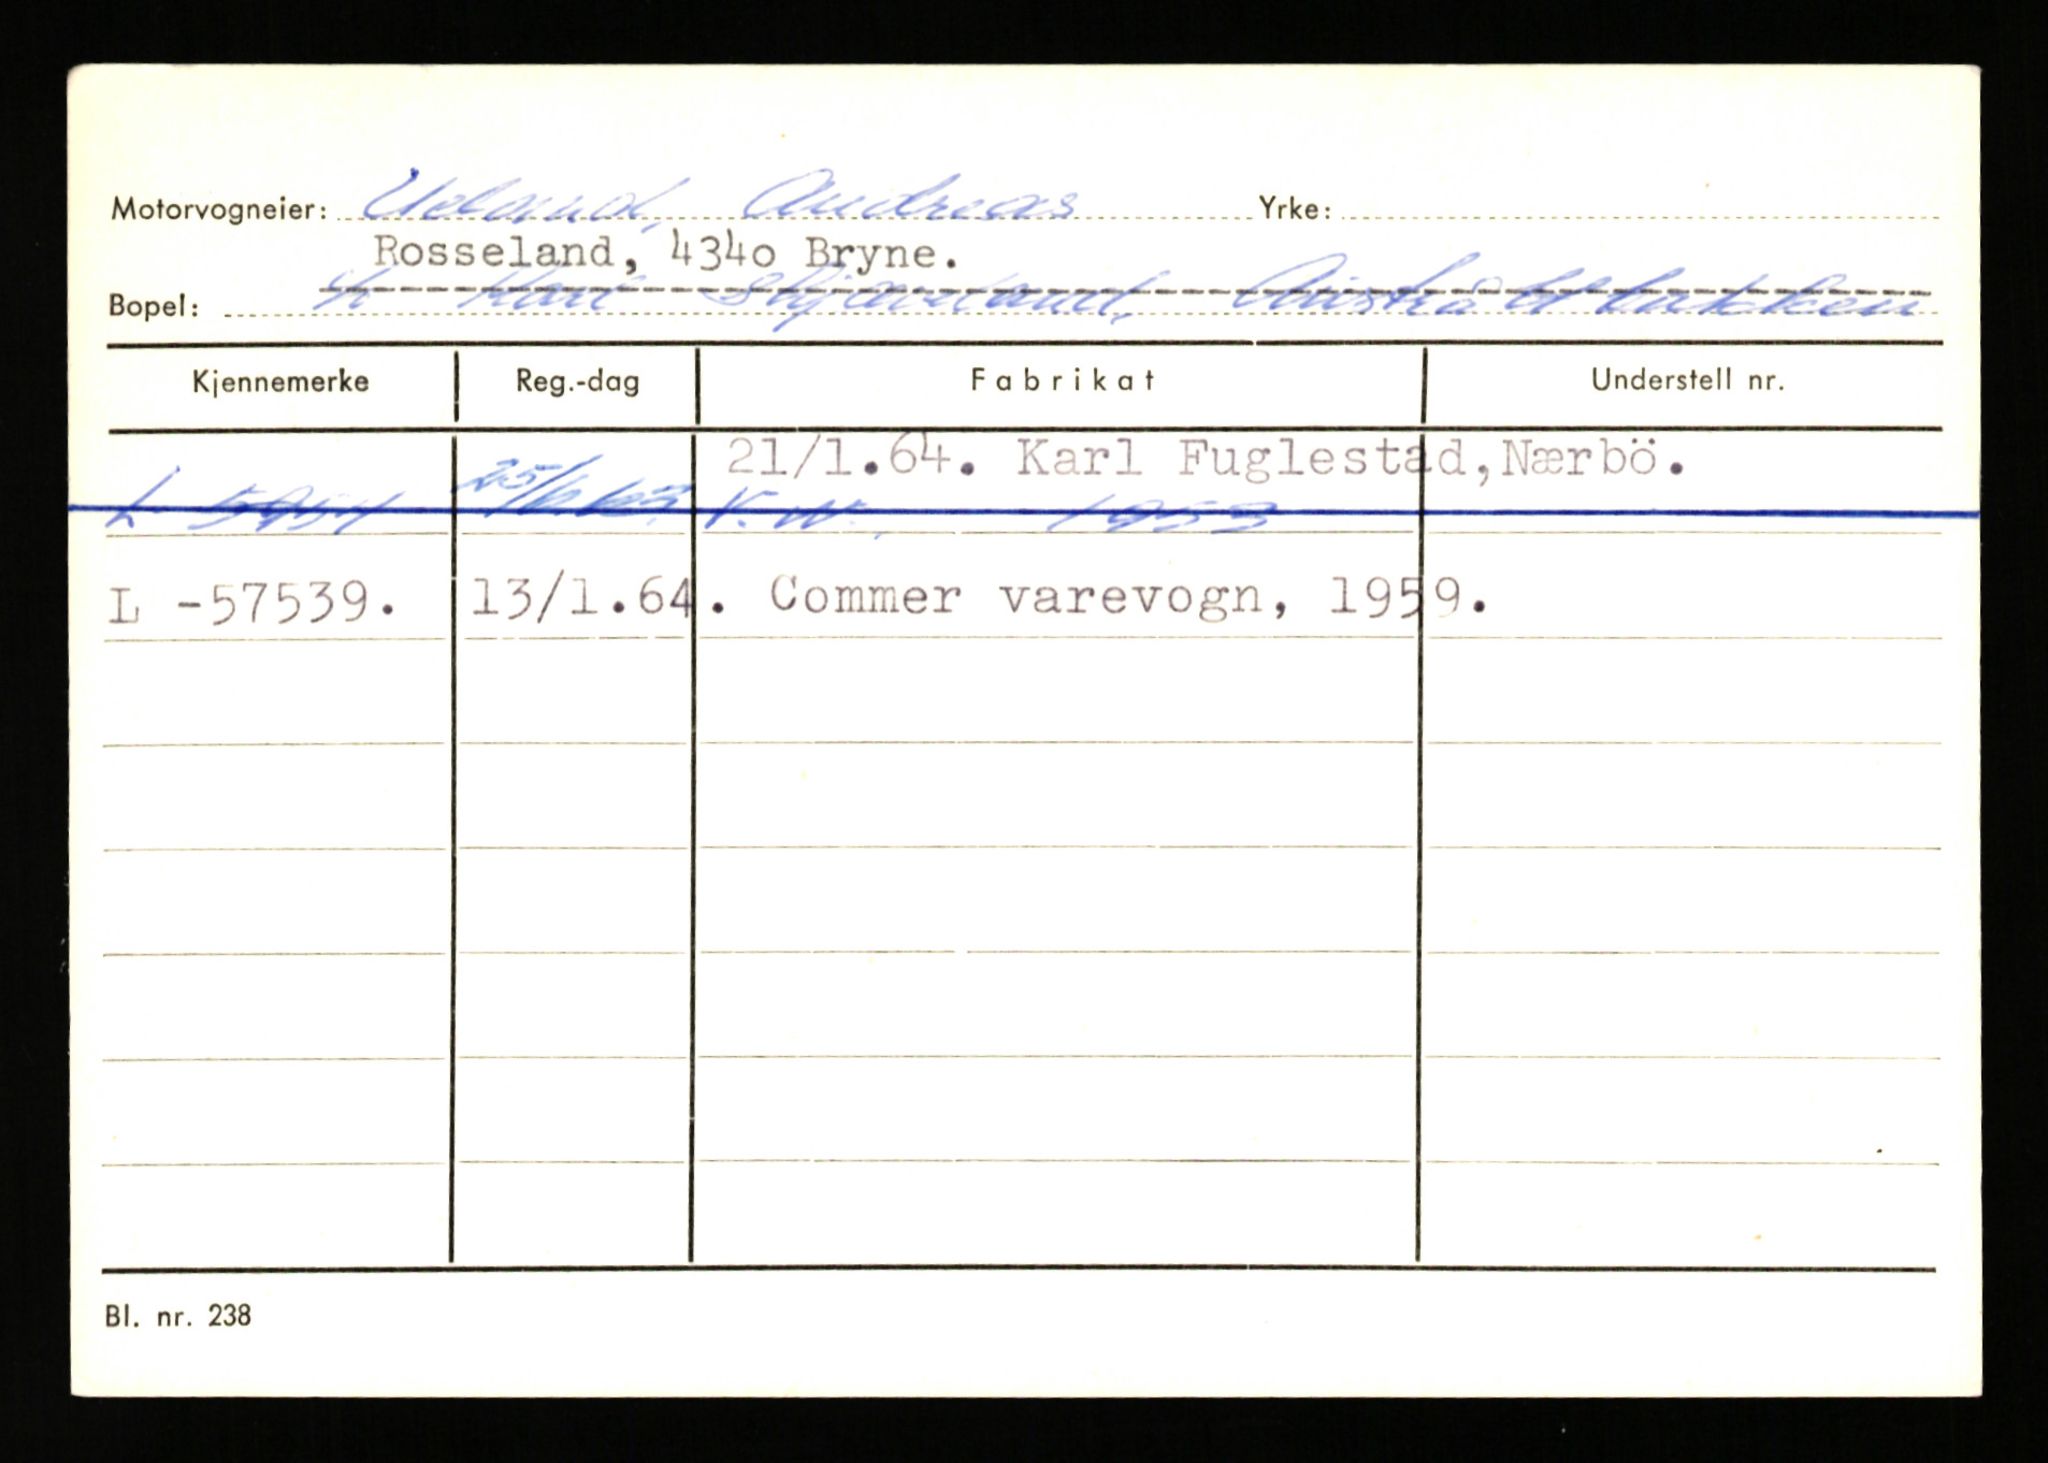 Motorvogneier: Ueland, Andreas Yrke:
Rosseland, 4340 Bryne.
Bopel: Karl Skjæveland, Austråttbakken
Kjennemerke Reg.-dag Fabrikat Understell nr.
21/1.64. Karl Fuglestad, Nærbö.
L 25/6 63. V.W. 1953
L -57539. 13/1.64. Commer varevogn, 1959.
Bl. nr. 238